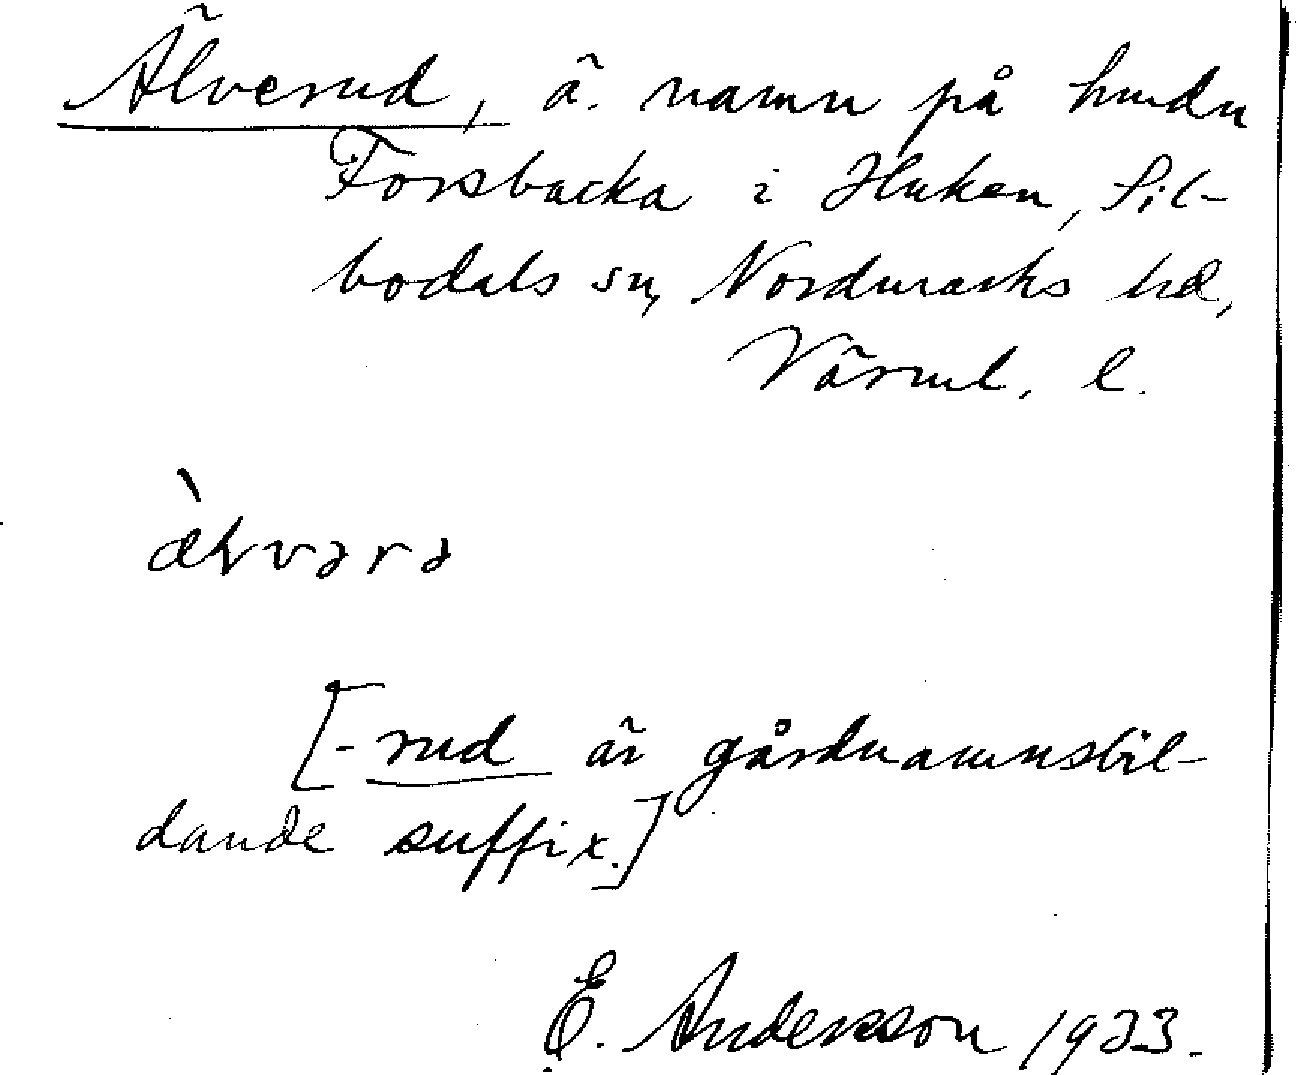 Älverud, ä. namn på hmdn
Forsbacka i Huken, Sil-
bodals sn, Nordmarks hd,
Värml. l.
ælvərə
[-rud är gårdnamnsbil-
dande suffix.]
E. Andersson 1923.